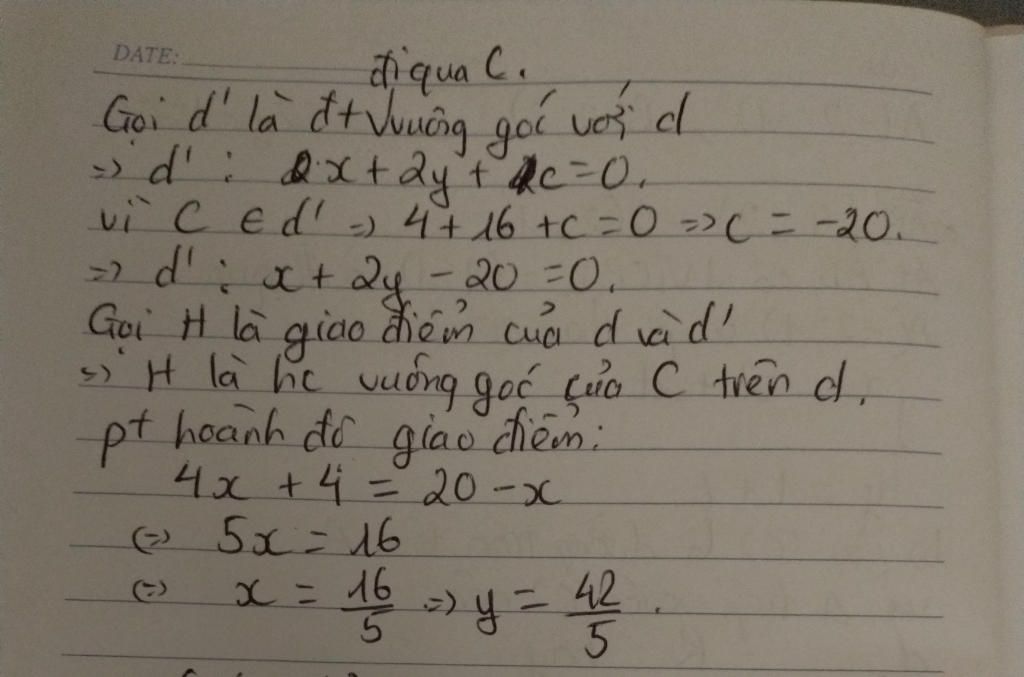 DATE:
đi qua C.
Gọi d' là đt vuông góc với d
=> d' : x + 2y + c = 0.
Vì C ∈ d' => 4 + 16 + c = 0 => c = -20.
=> d' : x + 2y - 20 = 0.
Gọi H là giao điểm của d và d'
=> H là hc vuông góc của C trên d.
pt hoành độ giao điểm:
4x + 4 = 20 - x
<=> 5x = 16
<=> x = 16/5 => y = 42/5.